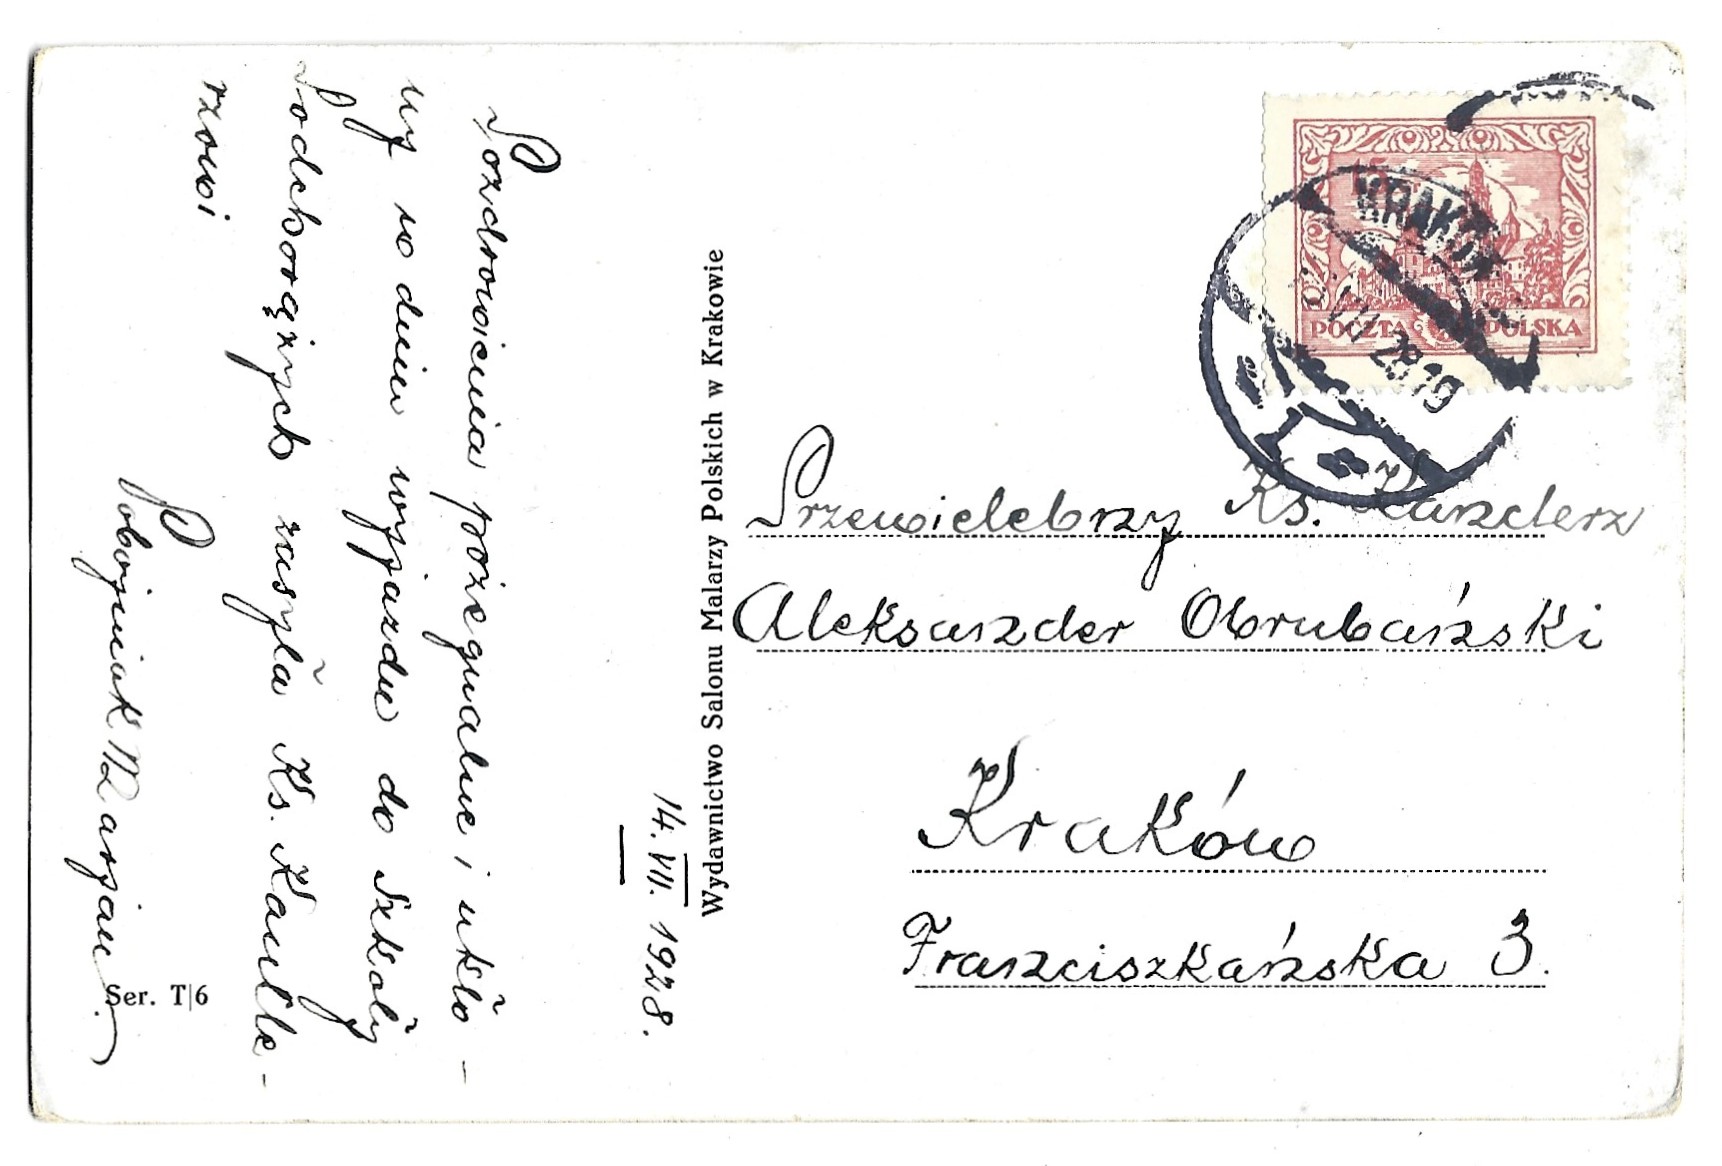 Pozdrowienia pożegnalne i ukło-
ny w dniu wyjazdu do Szkoły
Podchorążych zasyła Ks. Kancle-
rzowi
Pobojniak Maryan.
14. VII. 1928.
Ser. T|6
Wydawnictwo Salonu Malarzy Polskich w Krakowie
KRAKÓW
VII 28 19
POCZTA POLSKA
Przewielebny Ks. Kanclerz
Aleksander Obrubański
Kraków
Franciszkańska 3.